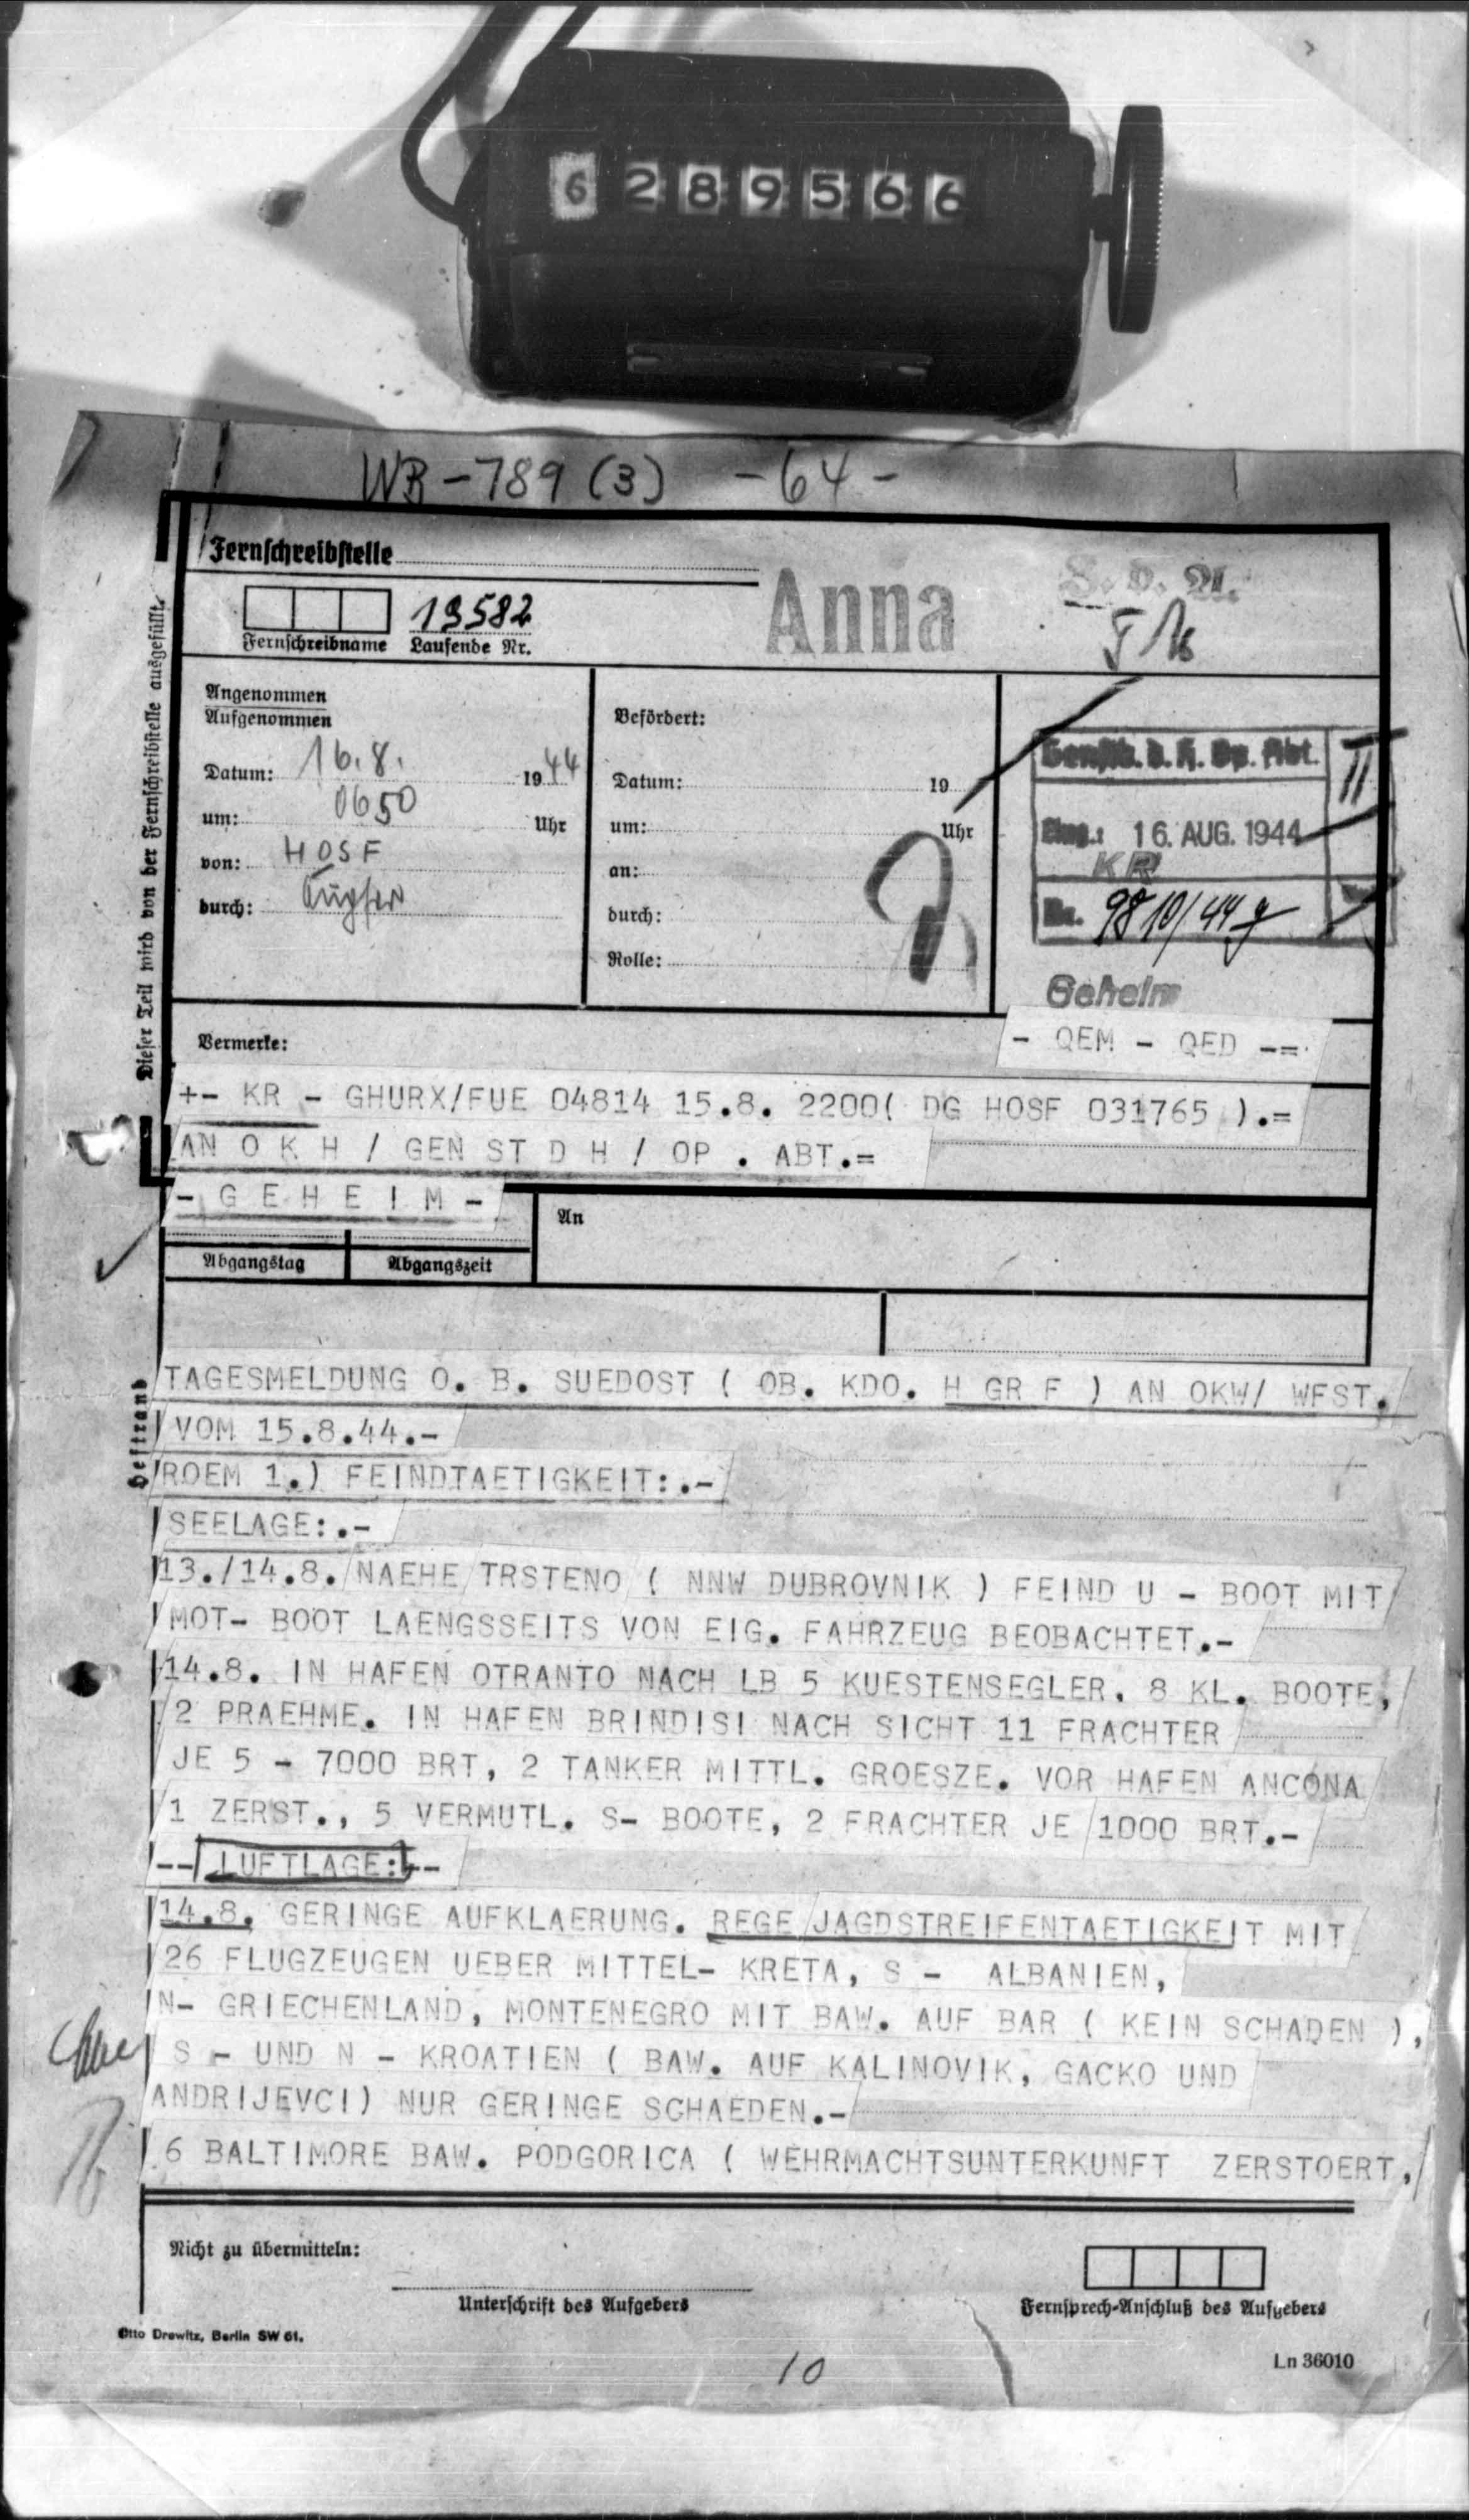 6289566
WR-789 (3) -64-
Fernschreibstelle
Anna
13582
Fernschreibname Laufende Nr.
Dieser Teil wird von der Fernschreibstelle ausgefüllt.
Angenommen
Aufgenommen
Datum: 16.8. 1944
um: 0650 Uhr
von: HOSF
durch:
Befördert:
Datum: 19
um: Uhr
an:
durch:
Rolle:
Genstb. d. H. Op. Abt. II
Eing.: 16. AUG. 1944
KR
Nr. 9810/44 g
Geheim
Vermerke:
- QEM - QED --=
+- KR - GHURX/FUE 04814 15.8. 2200( DG HOSF 031765 ).=
AN O K H / GEN ST D H / OP . ABT.=
- G E H E I M -
An
Abgangstag Abgangszeit
Heftrand
TAGESMELDUNG O. B. SUEDOST ( OB. KDO. H GR F ) AN OKW/ WFST.
VOM 15.8.44.-
ROEM 1.) FEINDTAETIGKEIT:.-
SEELAGE:.-
13./14.8. NAEHE TRSTENO ( NNW DUBROVNIK ) FEIND U - BOOT MIT
MOT- BOOT LAENGSSEITS VON EIG. FAHRZEUG BEOBACHTET.-
14.8. IN HAFEN OTRANTO NACH LB 5 KUESTENSEGLER, 8 KL. BOOTE,
2 PRAEHME. IN HAFEN BRINDISI NACH SICHT 11 FRACHTER
JE 5 - 7000 BRT, 2 TANKER MITTL. GROESZE. VOR HAFEN ANCONA
1 ZERST., 5 VERMUTL. S- BOOTE, 2 FRACHTER JE 1000 BRT.-
-- LUFTLAGE:--
14.8. GERINGE AUFKLAERUNG. REGE JAGDSTREIFENTAETIGKEIT MIT
26 FLUGZEUGEN UEBER MITTEL- KRETA, S - ALBANIEN,
N- GRIECHENLAND, MONTENEGRO MIT BAW. AUF BAR ( KEIN SCHADEN ),
S - UND N - KROATIEN ( BAW. AUF KALINOVIK, GACKO UND
ANDRIJEVCI) NUR GERINGE SCHAEDEN.-
6 BALTIMORE BAW. PODGORICA ( WEHRMACHTSUNTERKUNFT ZERSTOERT,
Nicht zu übermitteln:
Unterschrift des Aufgebers
Fernsprech-Anschluß des Aufgebers
Otto Drewitz, Berlin SW 61.
10
Ln 36010